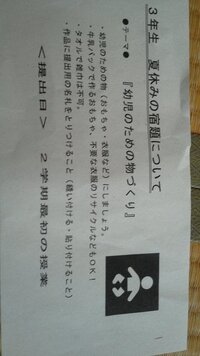 3年生　夏休みの宿題について
●テーマ●
『幼児のための物づくり』
・幼児のための物（おもちゃ・衣服など）にしましょう。
・牛乳パックで作るおもちゃ、不要な衣服のリサイクルなどもOK！
・タオルで雑巾は不可。
・作品に提出用の名札をとりつけること（縫い付ける・貼り付けること）
＜提出日＞　2学期最初の授業